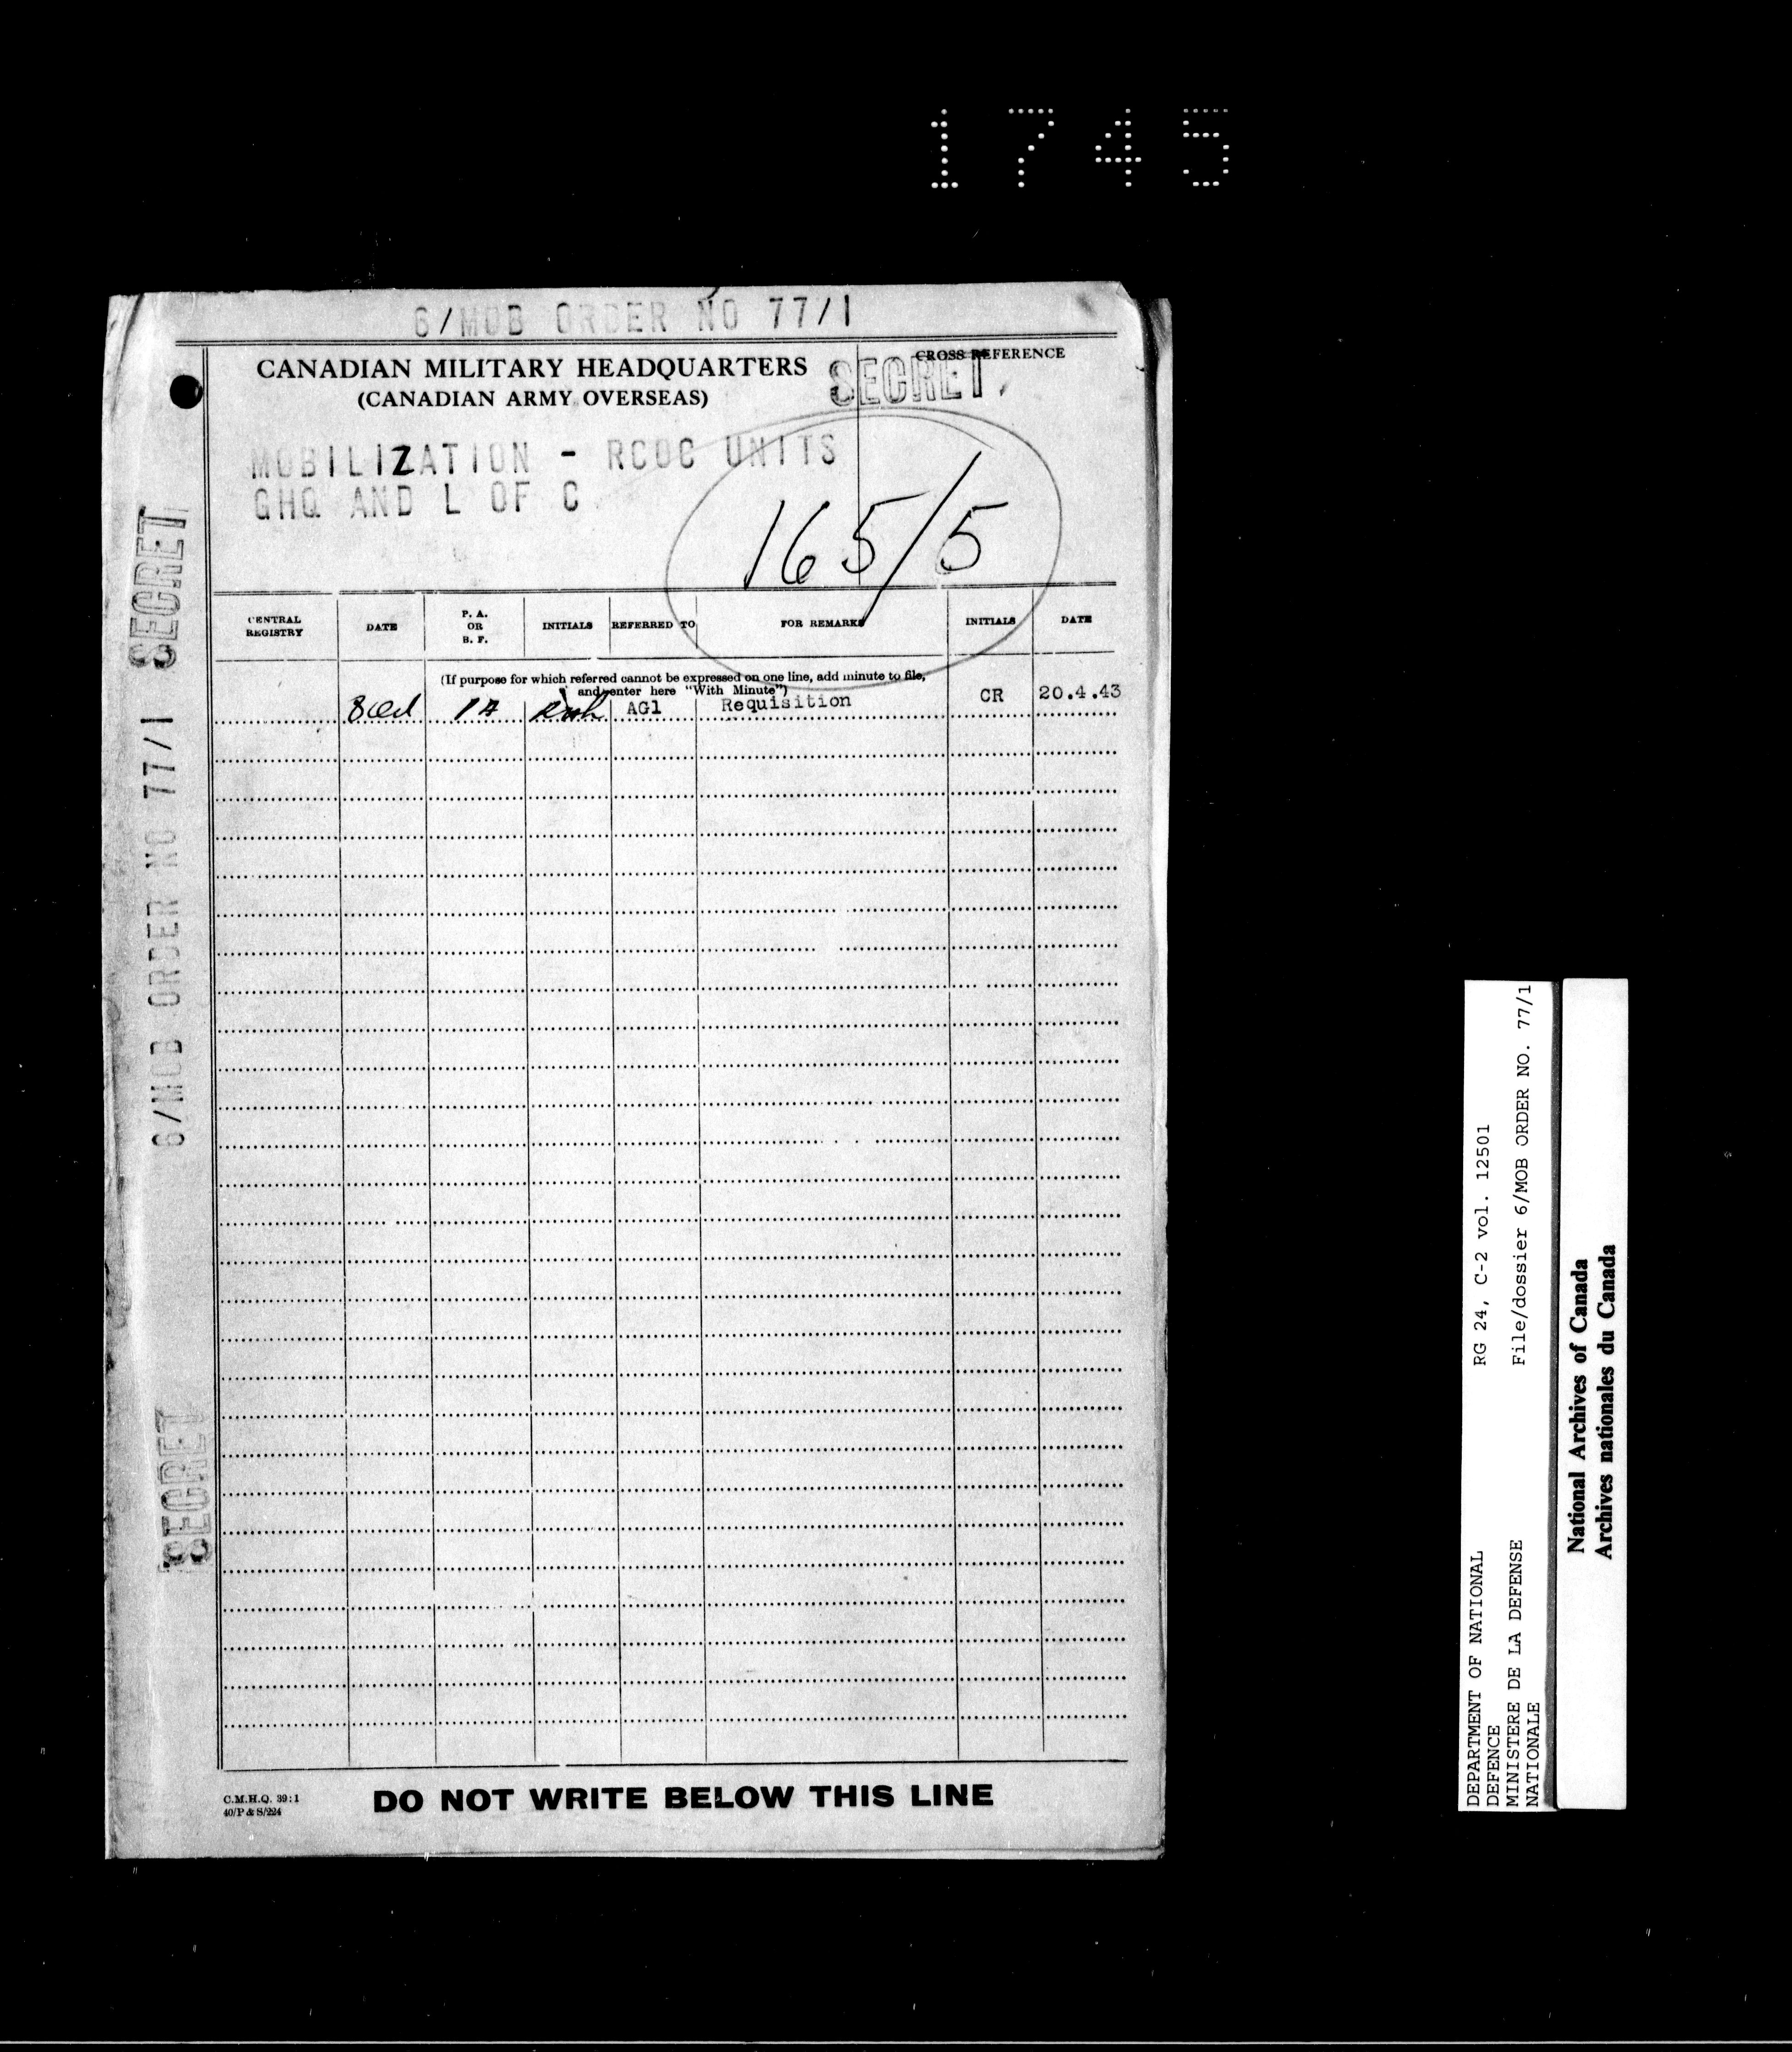 1745
6/MOB ORDER NO 77/1
CANADIAN MILITARY HEADQUARTERS
(CANADIAN ARMY OVERSEAS)
CROSS REFERENCE
SECRET
MOBILIZATION - RCOC UNITS
GHQ AND L OF C
165/5
CENTRAL REGISTRY
DATE
P. A. OR B. F.
INITIALS
REFERRED TO
FOR REMARKS
INITIALS
DATE
(If purpose for which referred cannot be expressed on one line, add minute to file,
and enter here "With Minute")
AG1 Requisition CR 20.4.43
C.M.H.Q. 39:1
40/P & S/224
DO NOT WRITE BELOW THIS LINE
SECRET
6/MOB ORDER NO 77/1
SECRET
DEPARTMENT OF NATIONAL
DEFENCE
MINISTERE DE LA DEFENSE
NATIONALE
RG 24, C-2 vol. 12501
File/dossier 6/MOB ORDER NO. 77/1
National Archives of Canada
Archives nationales du Canada